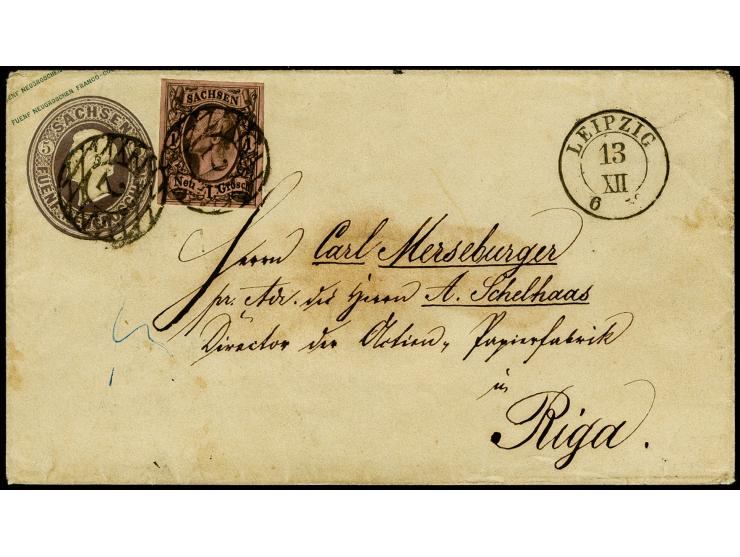 FUENF NEUGROSCHEN FRANCO-CO
FUENF NEUGROSCHEN
SACHSEN
5
SACHSEN
1
Neu-1 Grosch
LEIPZIG
13
XII
6
Herrn Carl Merseburger
pr. Adr. des Herrn A. Schelhaas
Director der Actien-Papierfabrik
in
Riga.